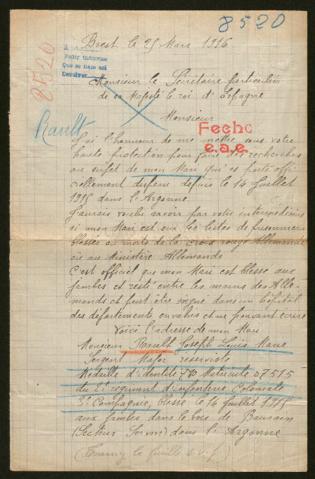 8520
8520
Brest le 25 Mars 1916
Monsieur le Secrétaire particulier
de sa Majesté le roi d'Espagne
Monsieur
Rault
Fecho
e.a.e.
J'ai l'honneur de me mettre sous votre
haute protection pour faire des recherches
au sujet de mon Mari qui est porté offi-
ciellement disparu depuis le 14 Juillet
1915 dans l'Argonne
J'aurais voulu savoir par votre
si mon Mari est sur les listes de prisonniers
blessés ou morts de la croix rouge Allemande
ou au Ministère Allemande
C'est officiel que mon Mari est blessé aux
jambes et resté entre les mains des Alle-
mands et peut être soigné dans un hôpital
des départements envahis et ne pouvant écrire
Voici l'adresse de mon Mari
Monsieur Rault Joseph Louis Marie
Sergent Major réserviste
Médaille d'identité Matricule 07515
du 2e régiment d'infanterie Coloniale
Compagnie, blessé le 14 juillet 1915
aux jambes dans le bois de
(Secteur) dans l'Argonne